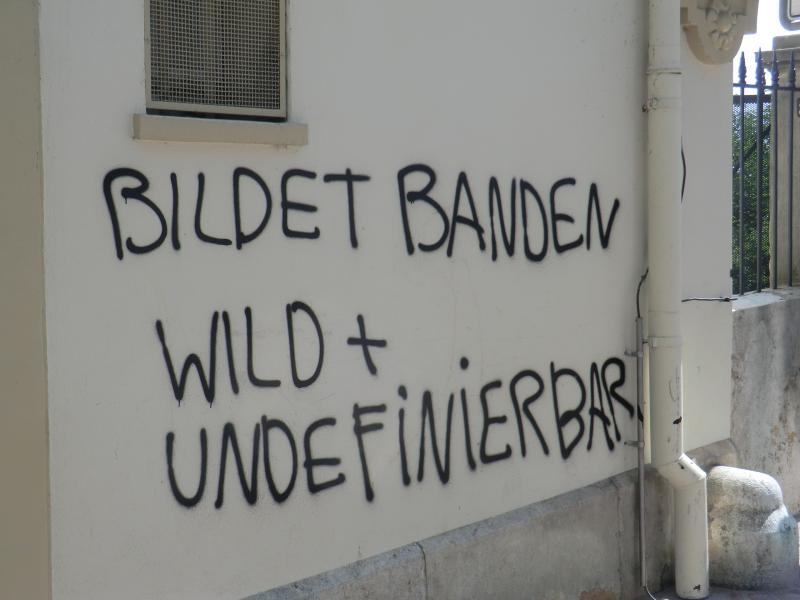 BILDET BANDEN
WILD +
UNDEFINIERBAR